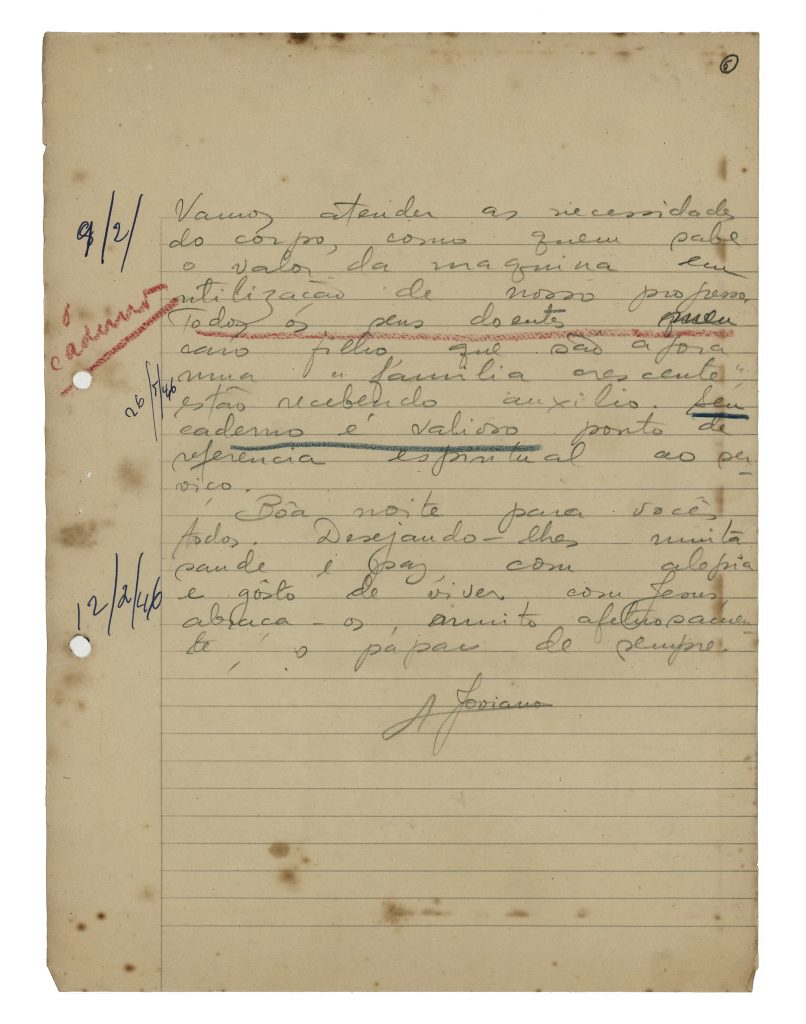 5
Vamos atender as necessidades
9/2/
do corpo, como quem sabe
o valor da maquina em
utilização de nosso progresso.
o
caderno
Todos os seus doentes, meu
caro filho que são agora
uma "familia crescente"
26/5/46
estão recebendo auxilio. Seu
caderno é valioso ponto de
referencia espiritual ao ser-
viço.
Bôa noite para vocês
todos. Desejando-lhes muita
saude e paz com alegria
e gôsto de viver com Jesus,
12/2/46
abraça-os, muito afetuosamen-
te, o papai de sempre.
A Joviano